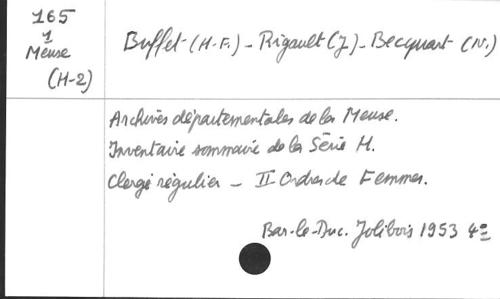 165
1
Meuse
(H-2)
Buffet (H-F.) - Rigault (J.) - Becquart (N.)
Archives départementales de la Meuse.
Inventaire sommaire de la Série H.
Clergé régulier - II Ordres de Femmes.
Bar-le-Duc. Jolibois 1953 4º